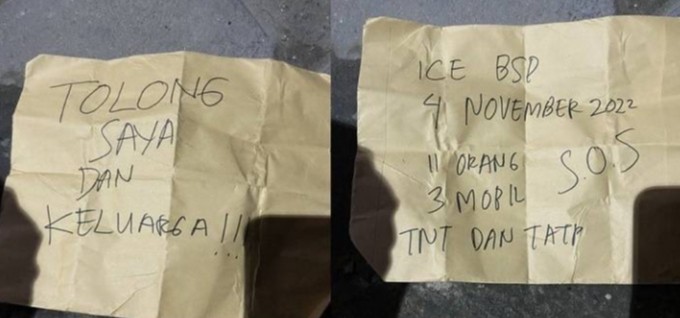 TOLONG
SAYA
DAN
KELUARGA!!!
ICE BSD
4 NOVEMBER 2022
11 ORANG
S.O.S
3 MOBIL
TNT DAN TATP